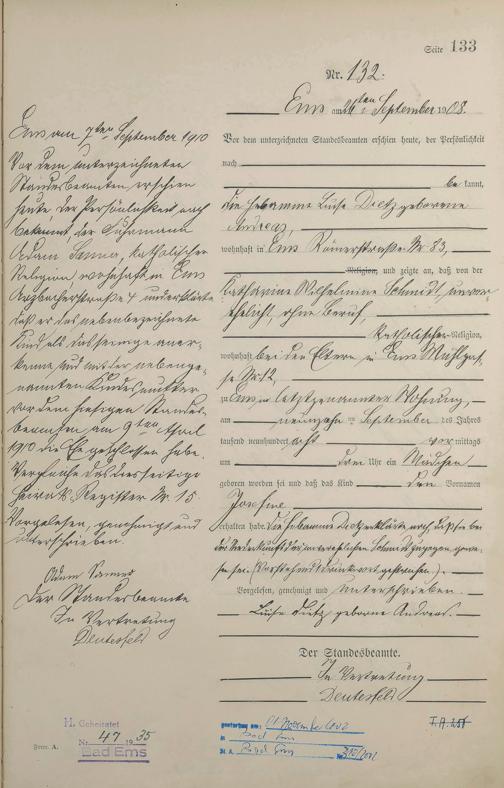 Seite 133
Nr. 132.
Ems am ten September 1908.
Vor dem unterzeichneten Standesbeamten erschien heute, der Persönlichkeit
nach
be kannt,
die Hebamme Luise Dietz geborene
Andreas,
wohnhaft in Ems Römerstraße Nr 83,
Religion, und zeigte an, daß von der
Katharine Wilhelmine Schmidt, unver-
ehelicht, ohne Beruf,
Katholischer Religion,
wohnhaft bei den Eltern in Ems Mühlgas-
se Nr 12,
zu Ems in letztgenannter Wohnung,
am neunzehn September des Jahres
tausend neunhundert acht vor mittags
um drei Uhr ein Mädchen
geboren worden sei und daß das Kind den Vornamen
Josefine
erhalten habe. Die Hebamme Dietz erklärte noch, daß sie bei
der Niederkunft der unverehelichten Schmidt zugegen gewe-
sen sei. (Vorstehend Druckwort gestrichen).
Vorgelesen, genehmigt und unterschrieben.
Luise Dietz geborne Andreas.
Der Standesbeamte.
In Vertretung
Deutesfeld
Ems am 7ten September 1910
Vor dem unterzeichneten
Standesbeamten erschien
heute, der Persönlichkeit nach
bekannt, der Fuhrmann
Adam Sanner, katholischer
Religion, wohnhaft in Ems
Arzbacherstraße 4 und erklärte
daß er das nebenbezeichnete
Kind als das seinige aner-
kenne und mit der nebenge-
nannten Kindesmutter
vor dem hiesigen Standes-
beamten am 9ten April
1910 die Ehe geschlossen habe.
Vergleiche das diesseitige
Heirats Register Nr. 15
Vorgelesen, genehmigt und
unterschrieben.
Adam Sanner
Der Standesbeamte
In Vertretung
Deutesfeld
H. Geheiratet
Nr. 47 1935
Bad Ems
Form. A.
gestorben am: 01. November 2002
in Bad Ems
St. A. Bad Ems